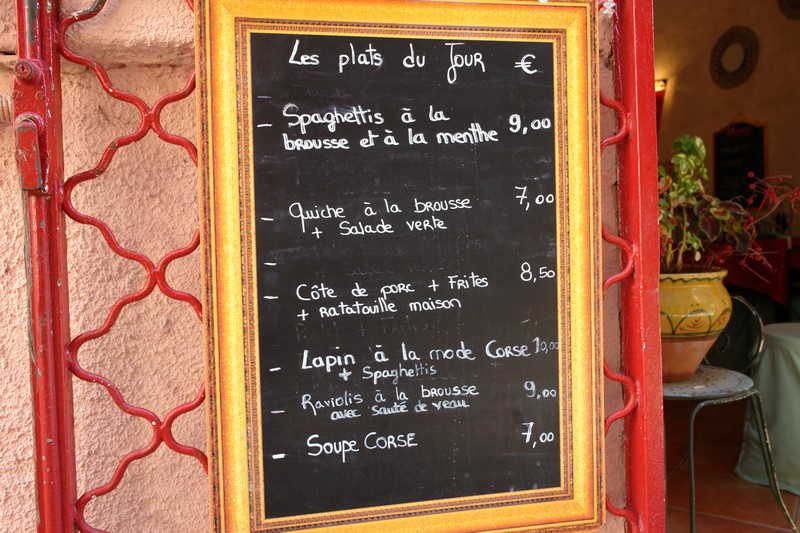 Les plats du Jour €
- Spaghettis à la
brousse et à la menthe 9,00
- Quiche à la brousse 7,00
+ Salade verte
-
- Côte de porc + Frites 8,50
+ ratatouille maison
- Lapin à la mode Corse 10,00
+ Spaghettis
- Raviolis à la brousse 9,00
avec sauté de veau
- Soupe Corse 7,00